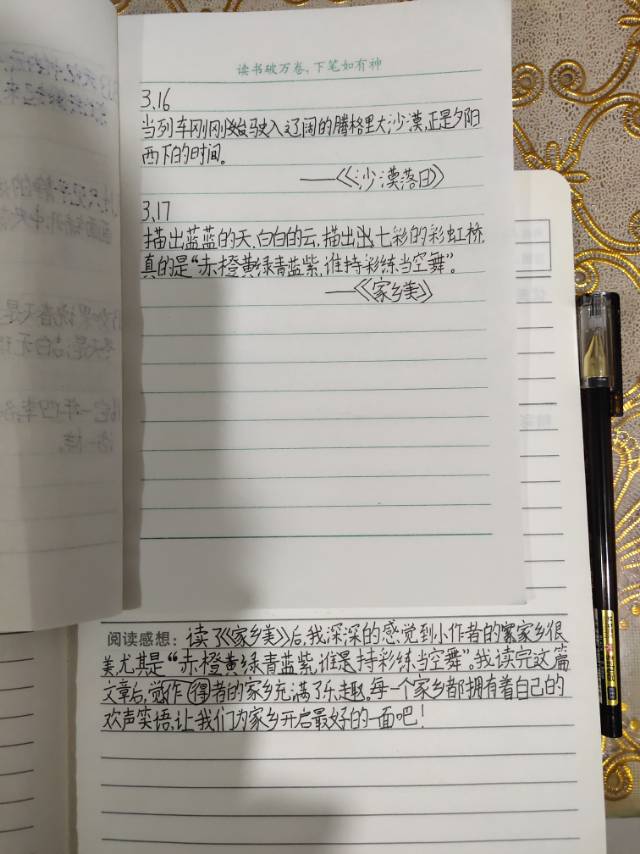 读书破万卷，下笔如有神
3.16
当列车刚刚驶入辽阔的腾格里大沙漠，正是夕阳
西下的时间。
——《沙漠落日》
3.17
描出蓝蓝的天，白白的云，描出七彩的彩虹桥
真的是“赤橙黄绿青蓝紫，谁持彩练当空舞”。
——《家乡美》
阅读感想：读了《家乡美》后，我深深的感觉到小作者的家乡很
美尤其是“赤橙黄绿青蓝紫，谁是持彩练当空舞”。我读完这篇
文章后，觉得作者的家乡充满了乐趣。每一个家乡都拥有着自己的
欢声笑语，让我们为家乡开启最好的一面吧！